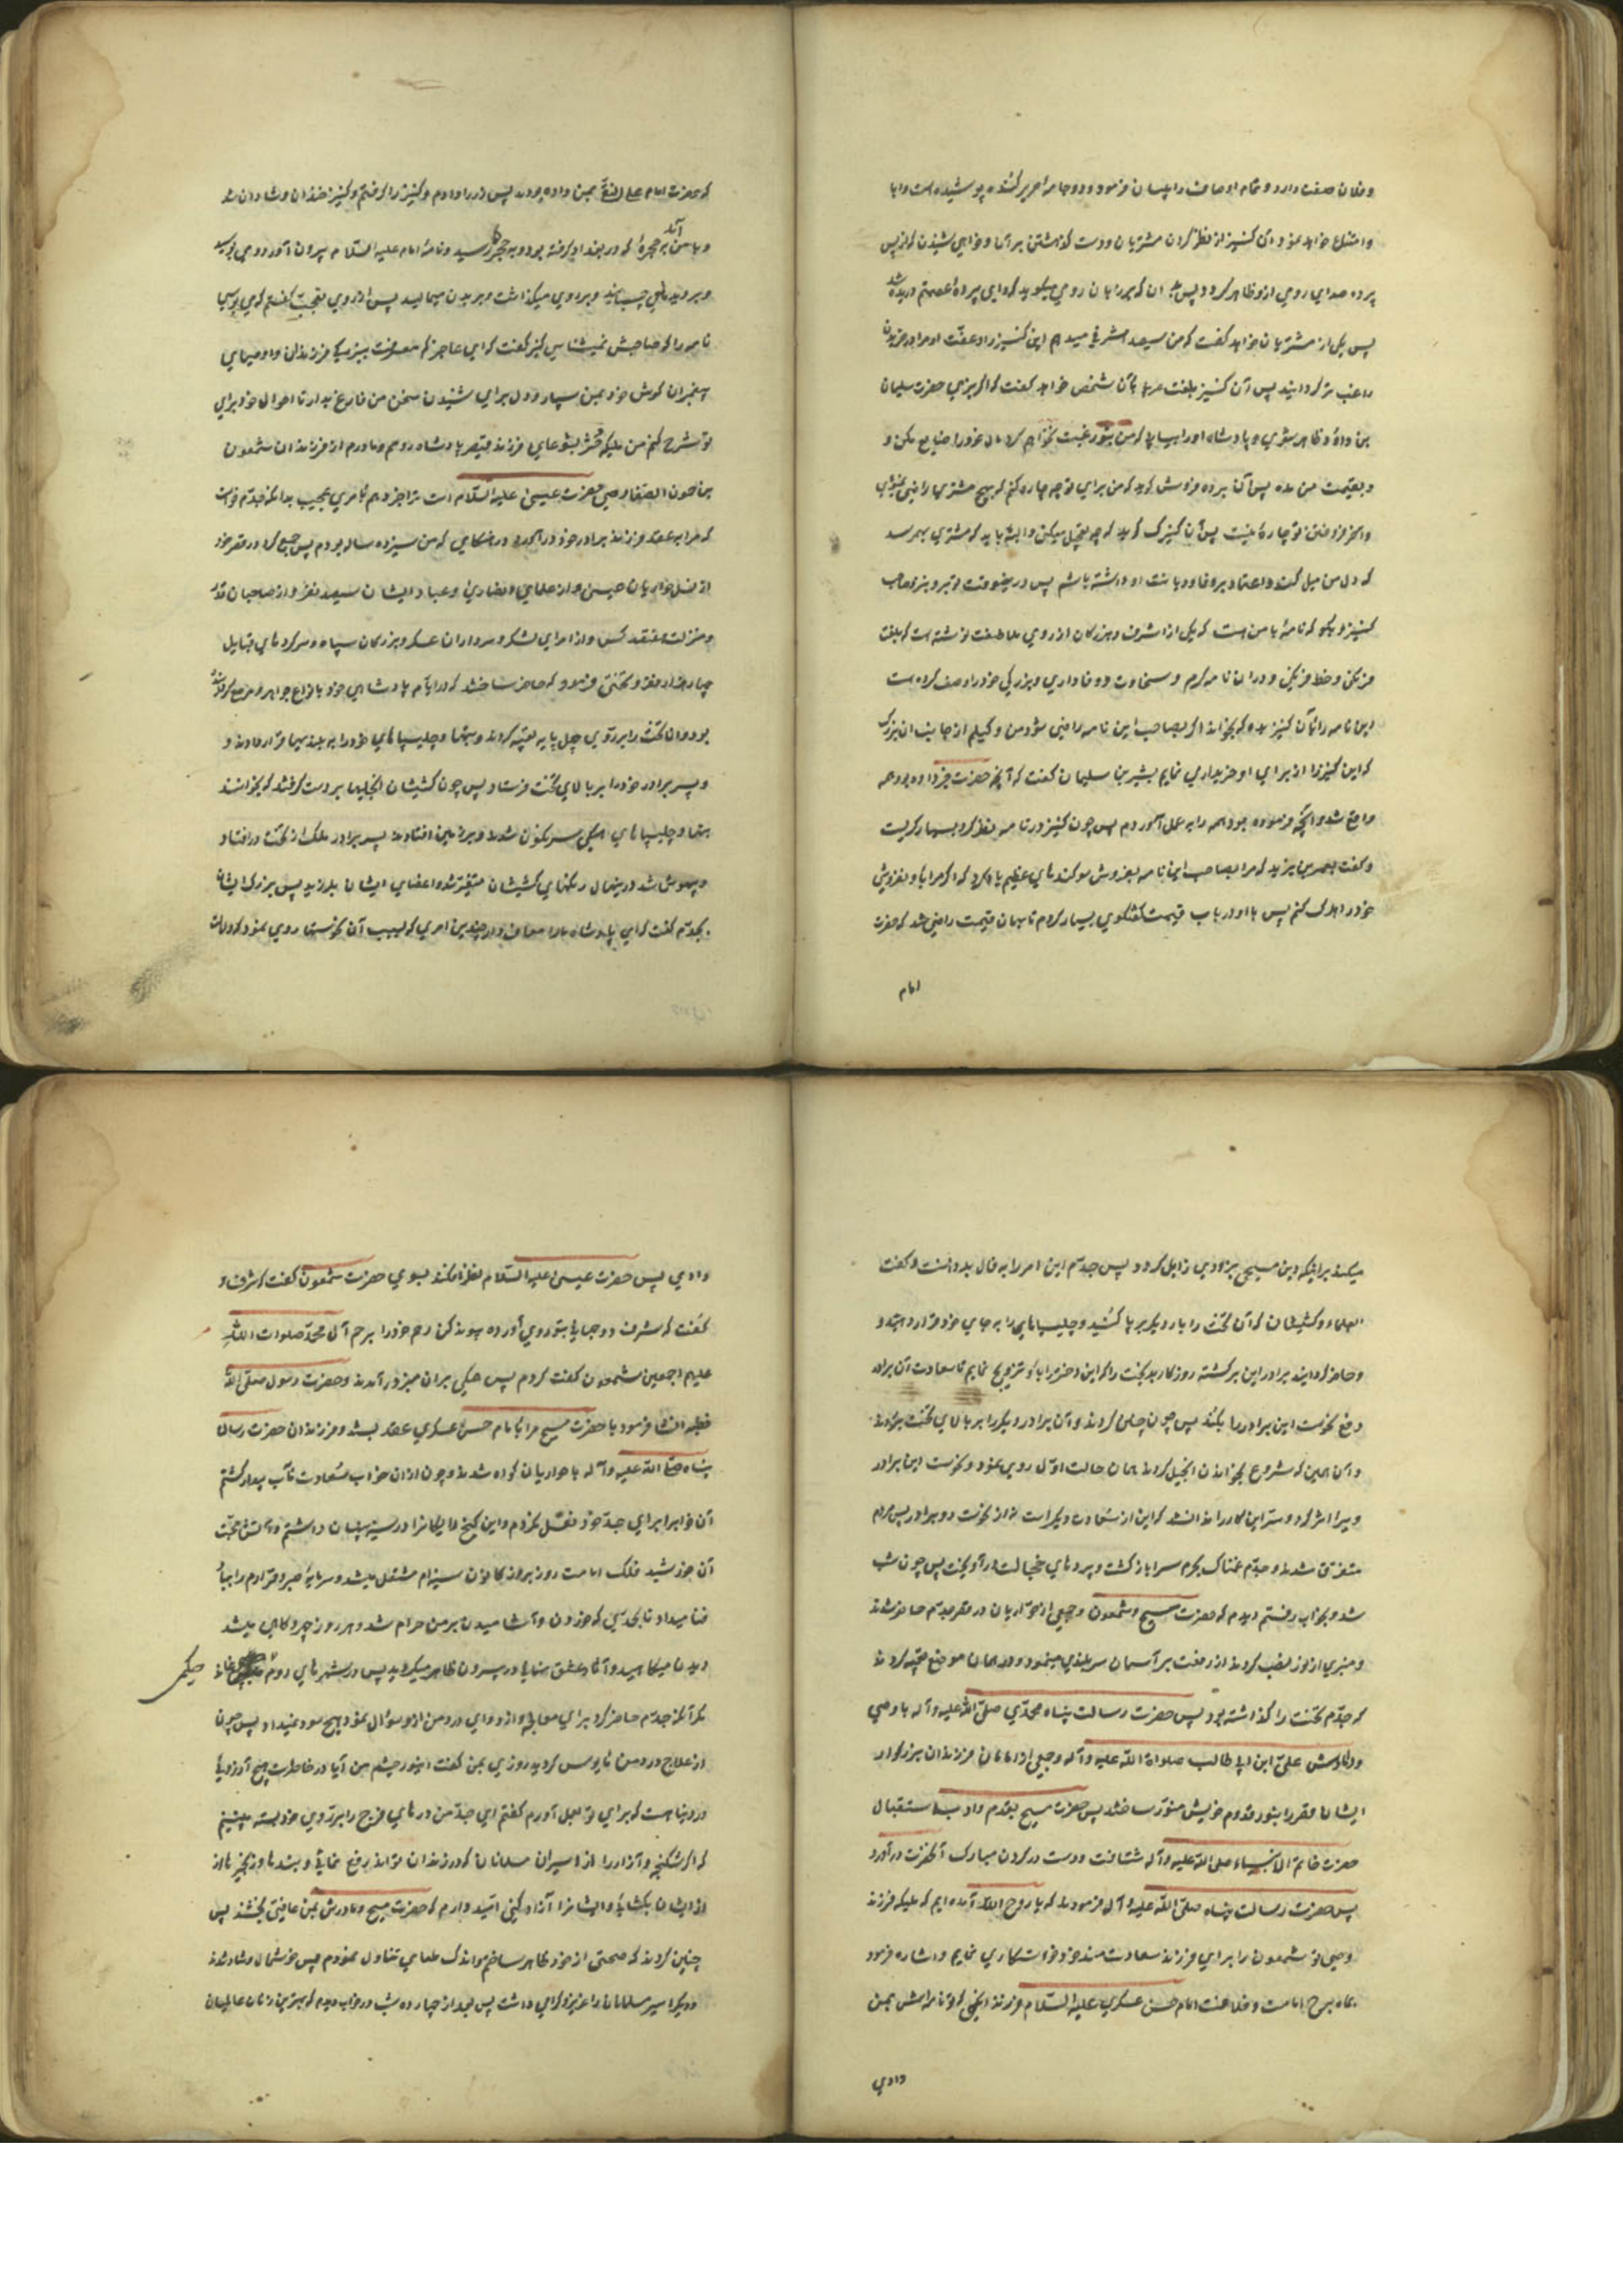 وفلان صفت دارد و تمام اوصاف را بیان فرمود و دو جامه حریر کنده پوشیده است و ابا
و امتناع خواهد نمود آن کنیز از نظر کردن مشتریان و دست گذاشتن بر آنها و خواهی شنید که از پس
پرده صدای رومی از او ظاهر گردد پس بدان که بزبان رومی میگوید که وای پرده عصمتم دریده شد
پس یکی از مشتریان خواهد گفت که من سیصد اشرفی میدهم این کنیز را و عفت او مرا در خریدن
راغب‌تر گردانید پس آن کنیز بلغت عربی بآن شخص خواهد گفت که اگر بزی حضرت سلیمان
بن داود ظاهر شوی و پادشاهی او را بیابی که من بتو رغبت نخواهم کرد مال خود را ضایع مکن و
و بقیمت من مده پس آن برده فروش گوید که من برای تو چه چاره کنم که بهیچ مشتری راضی نمیشوی
و آخر از فروختن تو چاره نیست پس آن کنیزک گوید که چه تعجیل میکنی البته باید که مشتری بهم رسد
که دل من میل کند و اعتماد بر وفا و دیانت او داشته باشم پس در ینوقت تو برو بنزد صاحب
کنیز و بگو که نامه با من است که یکی از اشراف و بزرگان از روی ملاطفت نوشته است که بلغت
فرنگی و خط فرنگی و در ان نامه کرم و سخاوت و وفاداری و بزرگی خود را وصف کرده است
این نامه را بآن کنیز بده که بخواند اگر بصاحب این نامه راضی شود من وکیلم از جانب ان بزرگ
که این کنیز را از برای او خریداری نمایم بشیر بن سلیمان گفت که آنچه حضرت خبر داده بود همه
واقع شد و آنچه فرموده بود همه را به عمل آوردم پس چون کنیز در نامه نظر کرد بسیار گریست
و گفت بعمر بن یزید که مرا بصاحب این نامه بفروش و سوگندهای عظیم یاد کرد که اگر مرا باو نفروشی
خود را هلاک کنم پس با او در باب قیمت گفتگوی بسیار کردم تا بهمان قیمت راضی شد که حضرت
امام
که حضرت امام علی النقی بمن داده بودند پس زر را دادم و کنیز را گرفتم و کنیز خندان و شادان شد
و با من آمد به حجره که در بغداد گرفته بود و به حجره رسید و نامه امام علیه السلام بیرون آورد و می بوسید
و بر دیده‌ها می چسپانید و بر روی میگذاشت و بر بدن میمالید پس از روی تعجب گفتم که می بوسی
نامه را که صاحبش نمیشناسی کنیز گفت که ای عاجز کم معرفت ببزرگی فرزندان و اوصیای
پیغمبران گوش خود بمن سپار و دل برای شنیدن سخن من فارغ بدار تا احوال خود برای
تو شرح کنم من ملیکه دختر یشوعای فرزند قیصر پادشاه روم و مادرم از فرزندان شمعون
بن حمون الصفا وصی حضرت عیسی علیه السلام است ترا خبر دهم بامری عجیب بدانکه جدم خواست
که مرا به عقد فرزند برادر خود در آورد در هنگامی که من سیزده ساله بودم پس جمع کرد در قصر خود
از نسل حواریان عیسی و از علمای نصاری و عباد ایشان سیصد نفر و از صاحبان قدر
و منزلت هفتصد کس و از امرای لشکر و سرداران عسکر و بزرگان سپاه و سرکردهای قبایل
چهار هزار نفر و تختی فرمود که حاضر ساختند که در ایام پادشاهی خود بانواع جواهر مرصع کرده
بود و ان تخت را بر روی چهل پایه تعبیه کردند و بتها و چلیپاهای خود را بر بلندیها قرار دادند و
و پسر برادر خود را بر بالای تخت فرستاد پس چون کشیشان انجیلها بر دست گرفتند که بخوانند
بتها و چلیپاهای همگی سرنگون شدند و بر زمین افتادند پسر برادر ملک از تخت در افتاد
و بیهوش شد در انحال رنگهای کشیشان متغیر شد و اعضای ایشان بلرزید پس بزرگ ایشان
بجدم گفت که ای پادشاه ما را معاف دار چنین امری که بسبب آن نحوستها روی نمود که دلالت
میکند بر اینکه دین مسیحی بزودی زایل گردد پس جدم این امر را به فال بد دانست و گفت
بعلما و کشیشان که آن تخت را بار دیگر بر پا کنید و چلیپاها را به جای خود قرار دهید و
و حاضر گردانید برادر این برگشته روزگار بدبخت را که این دختر را باو تزویج نمایم تا سعادت آن برادر
دفع نحوست این برادر را بکند پس چون چنان کردند و آن برادر دیگر را بر بالای تخت بردند
و آن همین که شروع بخواندن انجیل کردند همان حالت اول روی نمود و نحوست این برادر
و سر این کار را ندانستند که این از سعادت دیگر است نه از نحوست دو برادر پس مردم
متفرق شدند و جدم غمناک بحرم سرا باز گشت و پردهای خجالت در آویخت پس چون شب
شد و بخواب رفتم دیدم که حضرت مسیح و شمعون و جمعی از حواریان در قصر جدم حاضر شدند
و منبری از نور نصب کردند از رفعت بر آسمان سربلندی مینمود و در همان موضع تعبیه کردند
که جدم تخت را گذاشته بود پس حضرت رسالت پناه محمدی صلی الله علیه و آله با وصی
و دامادش علی ابن ابی طالب صلوات الله علیه و آله و جمعی از امامان فرزندان بزرگوار
ایشان قصر را بنور قدوم خویش منور ساختند پس حضرت مسیح بقدم ادب به استقبال
حضرت خاتم الانبیاء صلی الله علیه و آله شتافت و دست در گردن مبارک آنحضرت در آورد
پس حضرت رسالت پناه صلی الله علیه و آله فرمودند که یا روح الله آمده ایم که ملیکه فرزند
وصی تو شمعون را برای فرزند سعادتمند خود خواستکاری نمایم و اشاره فرمود
بماه برج امامت و خلافت امام حسن عسکری علیه السلام فرزند آنکسی که تو نامه‌اش بمن
دادی
دادی پس حضرت عیسی علیه السلام نظر افکند بسوی حضرت شمعون گفت که شرف و
گفت که شرف دو جهانی بتو روی آورده پیوند کن رحم خود را برحم آل محمد صلوات الله
علیهم اجمعین شمعون گفت کردم پس همگی بر ان منبر بر آمدند و حضرت رسول صلی الله
خطبه انشا فرمود با حضرت مسیح مرا با امام حسن عسکری عقد بستند و فرزندان حضرت رسالت
پناه صلی الله علیه و آله با حواریان گواه شدند و چون از ان خواب سعادت مآب بیدار گشتم
آن خواب را برای جد خود نقل نکردم و این گنج رایگان را در سینه پنهان داشتم و آتش محبت
آن خورشید فلک امامت روز بروز در کانون سینه‌ام مشتعل میشد و سرمایه صبر و قرار مرا بباد
فنا میداد تا بحدی که خوردن و آشامیدن بر من حرام شد و هر روز چهره کاهی میشد
و بدن میکاهید و آثار عشق نهانی در بیرون ظاهر میگردید پس در شهرهای روم حکیمی نماند
حکیمی
مگر آنکه جدم حاضر کرد برای معالجه و از دوای درد من از او سؤال نمود هیچ سود نمیداد پس چون
از علاج درد من مایوس گردید روزی بمن گفت ای نور چشم من آیا در خاطرت هیچ آرزویی
در دنیا هست که برای تو بعمل آورم گفتم ای جد من درهای فرج را بر روی خود بسته میبینم
که اگر شکنجه و آزار را از اسیران مسلمانان که در زندان تواند رفع نمائی و بندها و زنجیرها از
از ایشان بگشائی و ایشان را آزاد کنی امید دارم که حضرت مسیح و مادرش بمن عافیتی بخشند پس
چنین کردند که صحتی از خود ظاهر ساختم و اندک طعامی تناول نمودم پس خوشحال و شاد شدند
و دیگر اسیر مسلمانان را عزیز و گرامی داشت پس بعد از چهارده شب در خواب دیدم که بهترین زنان عالمیان